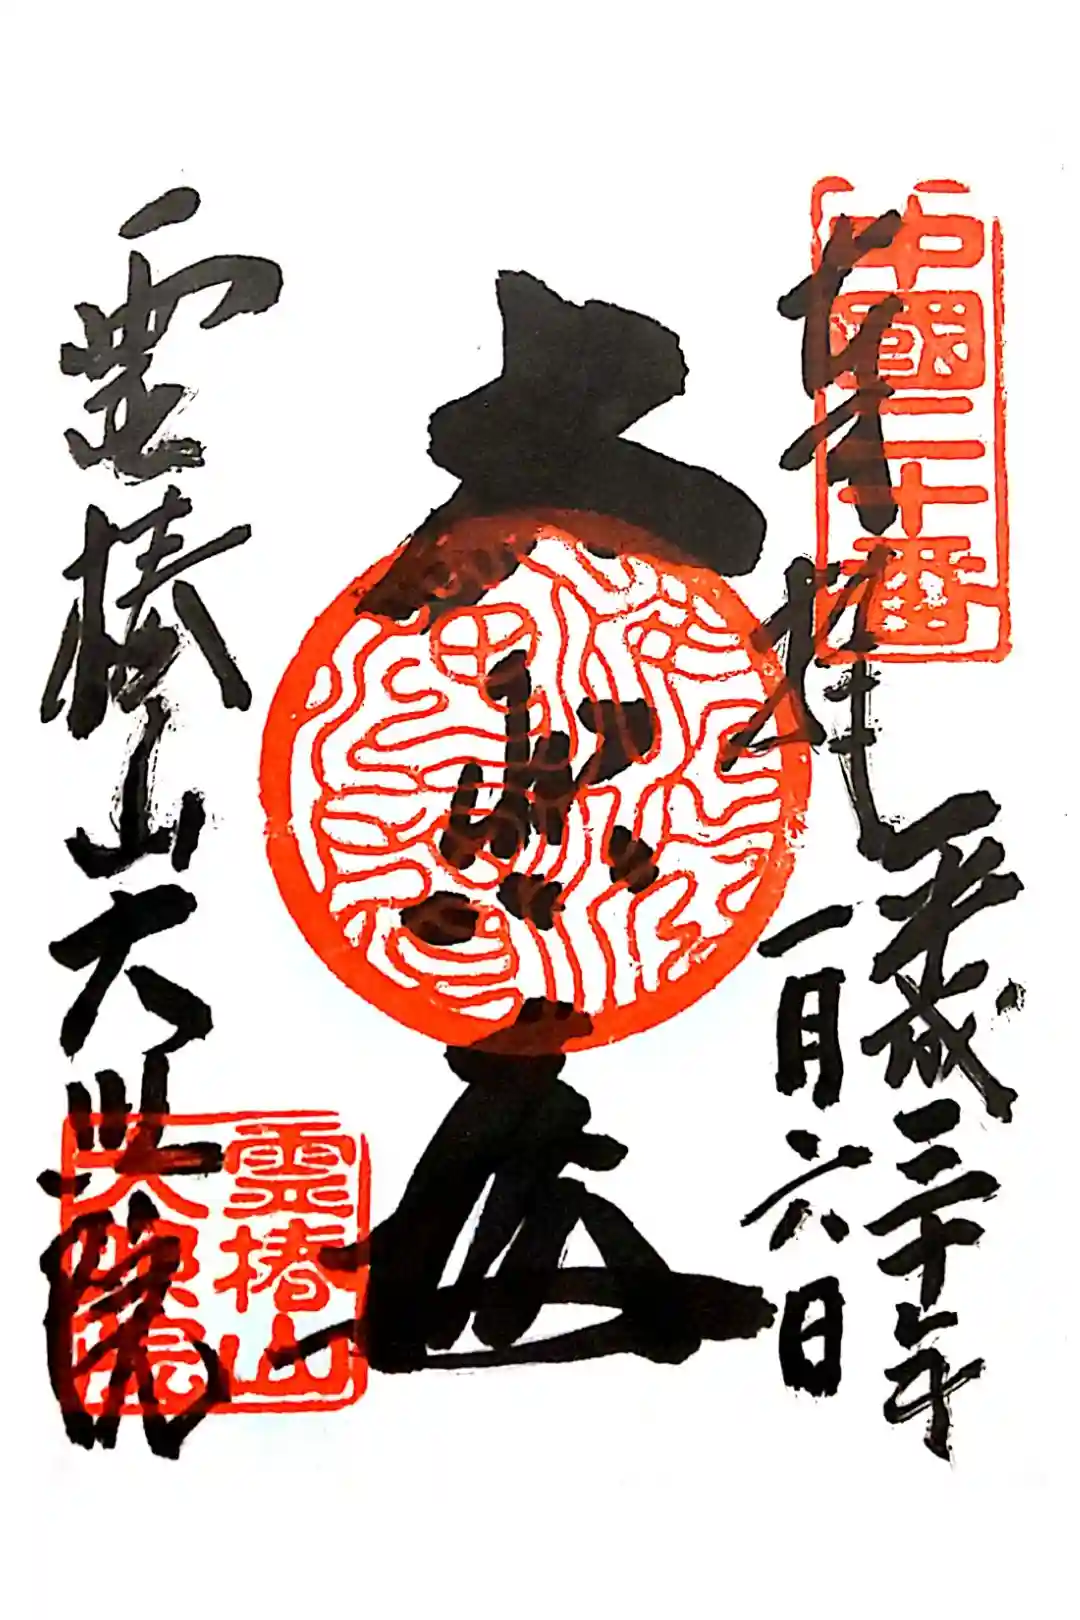 奉拝
平成三十年
一月六日
中國二十番
大悲
霊椿山大照院
霊椿山
大照院